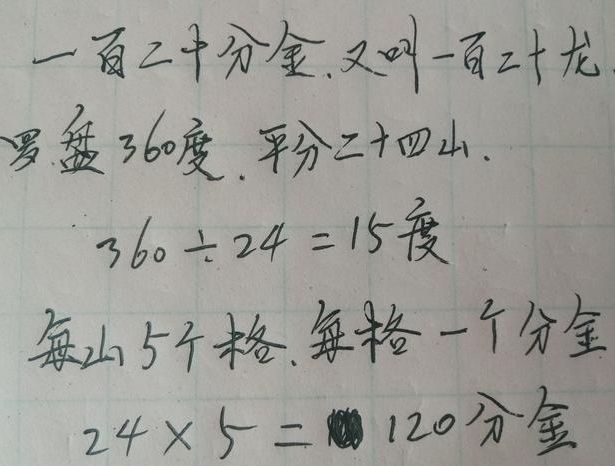 一百二十分金.又叫一百二十龙.
罗盘360度.平分二十四山.
360÷24=15度
每山5个格.每格一个分金
24×5=120分金